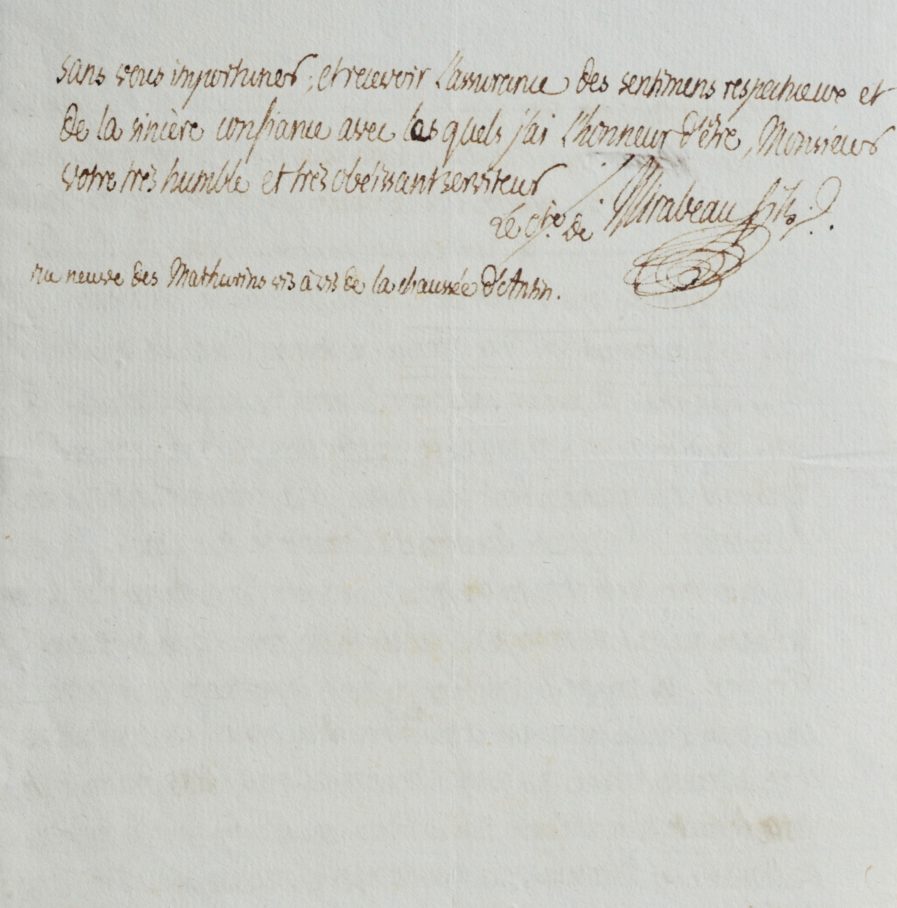 sans vous importuner, et recevoir l'assurance des sentimens respectueux et
de la sincère confiance avec les quels j'ai l'honneur d'être, Monsieur
votre très humble et très obéissant serviteur
Le Cte. de Mirabeau fils.
rue neuve des Mathurins vis à vis de la chaussée d'Antin.